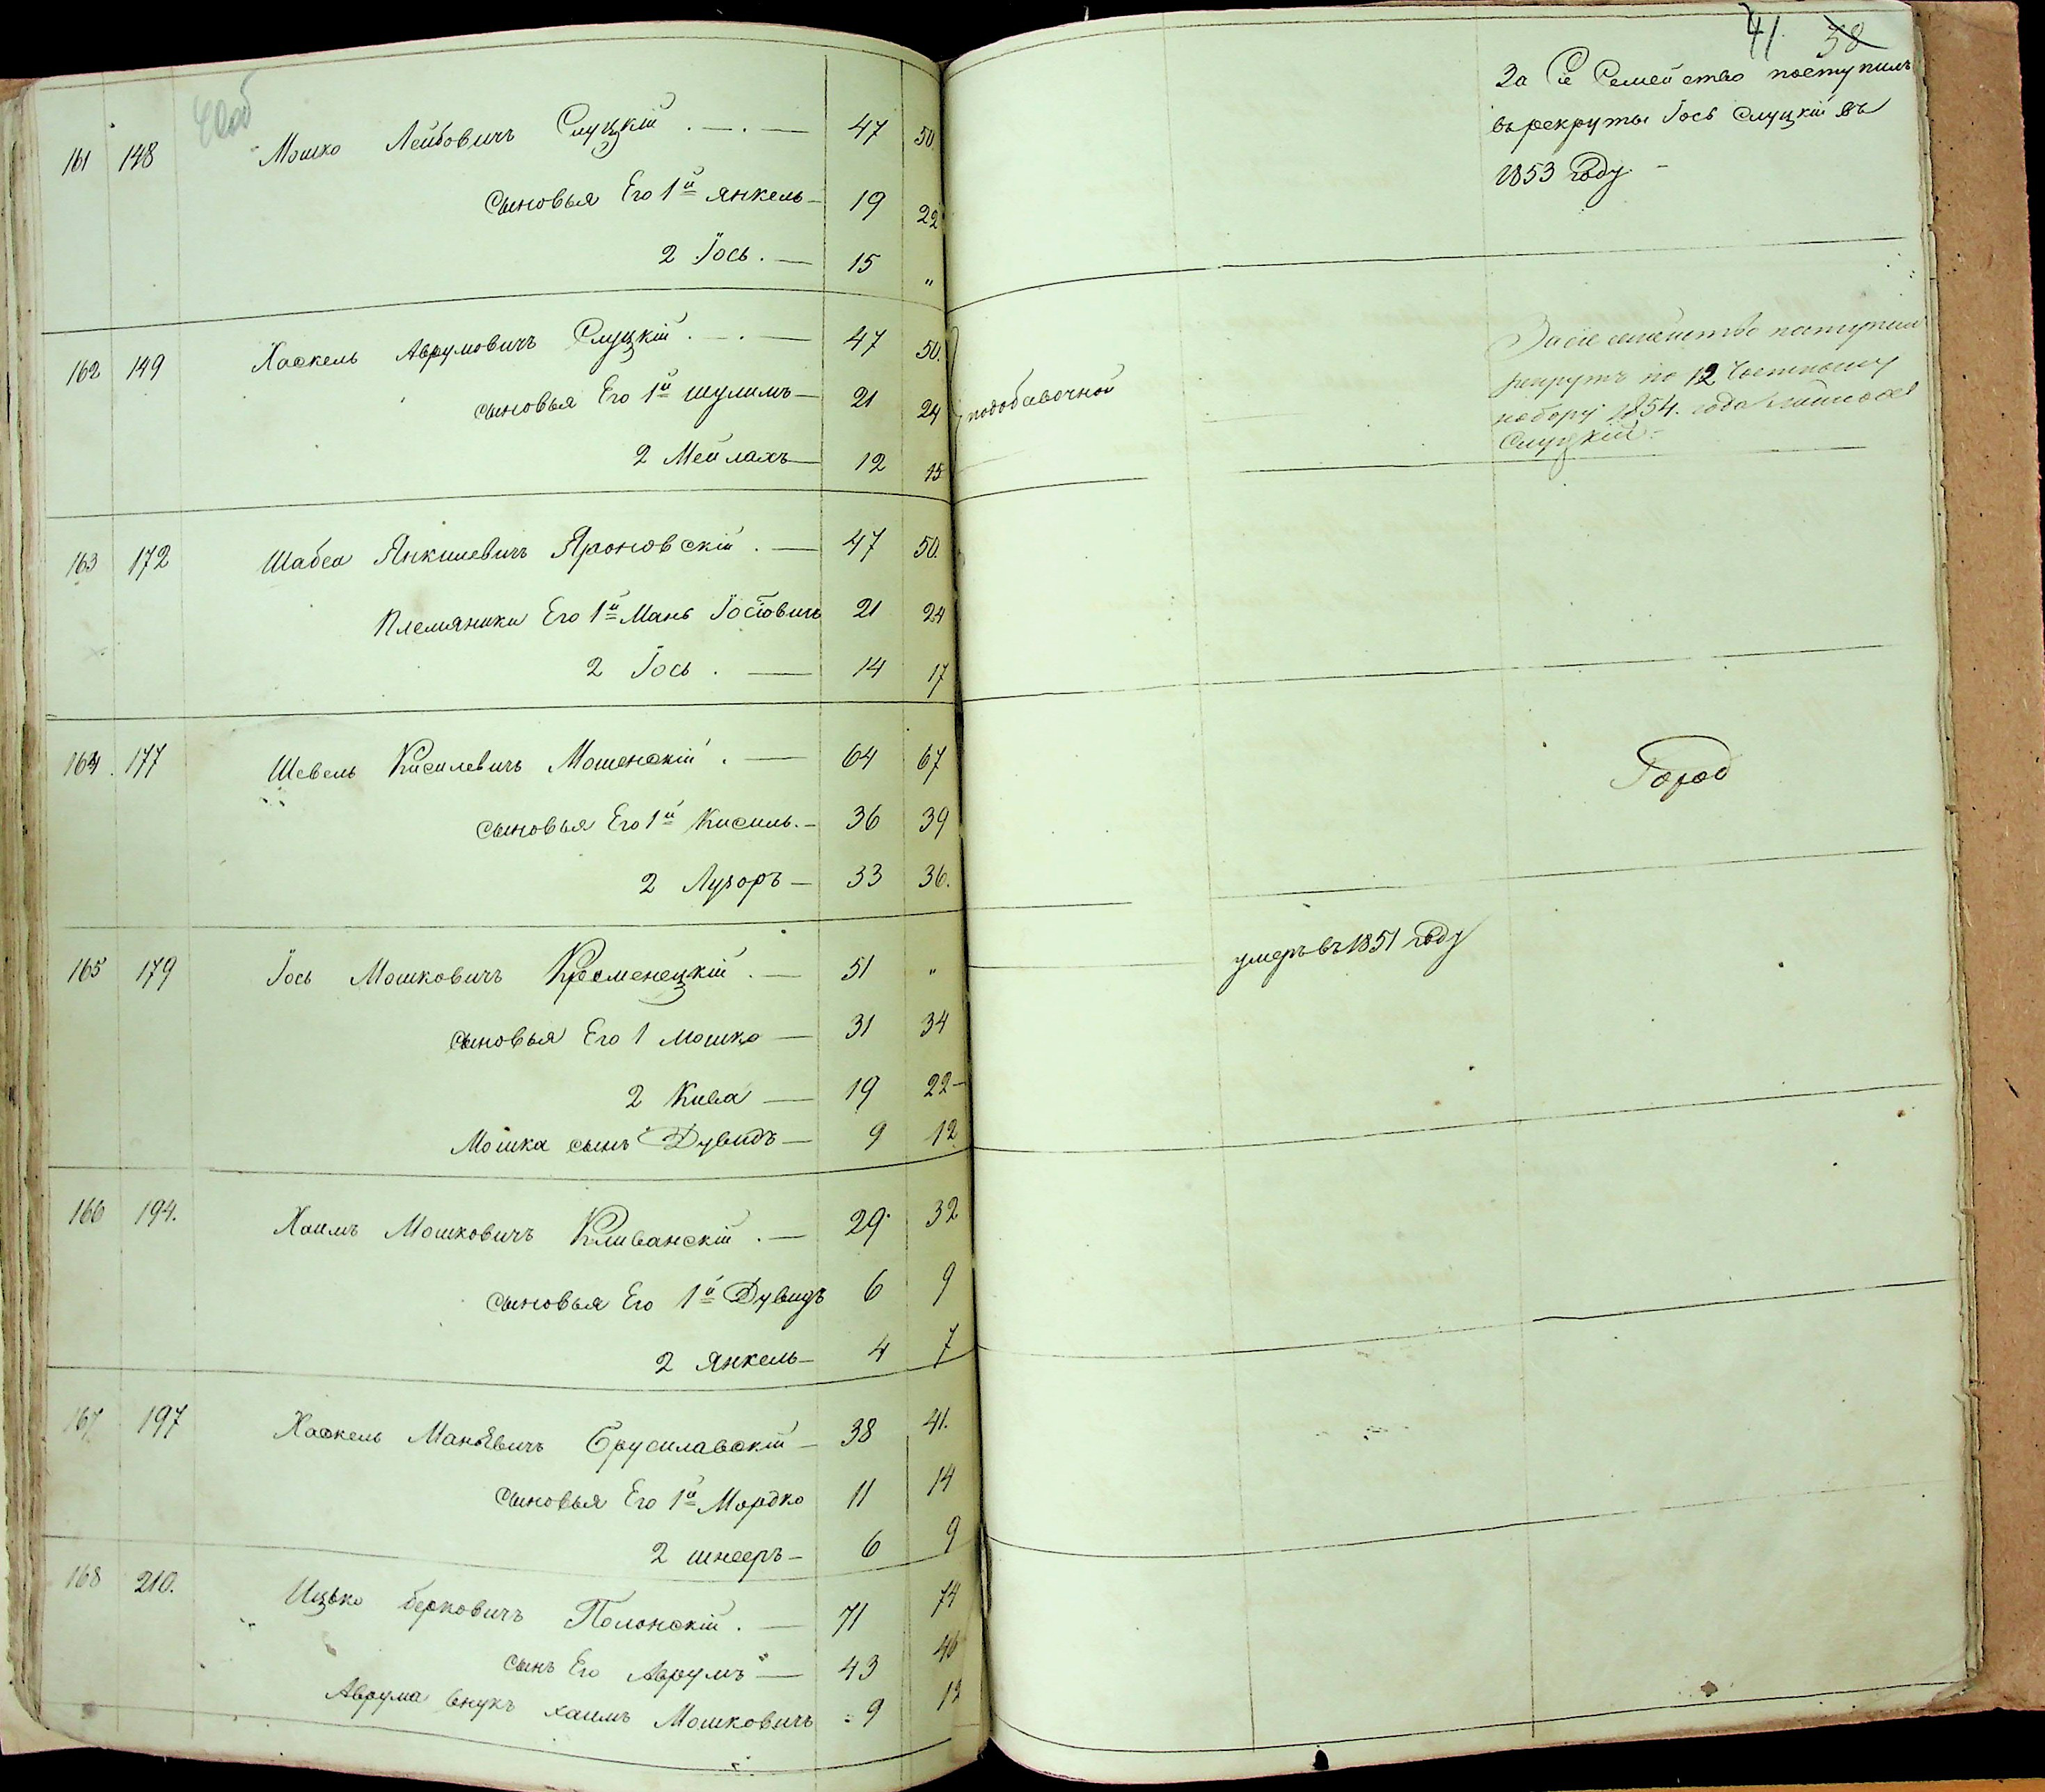 41. 38
161 148 Мошко Лейбовичъ Слуцкій 47 50.
Сыновья Его 1й Янкель 19 22
2 Іось 15 "
За Сіе Семейство поступилъ
въ рекруты Іось Слуцкій въ
1853 Году.
162 149 Хаскель Аврумовичъ Слуцкій 47 50.
сыновья Его 1й Шулимъ 21 24
2 Мейлахъ 12 15
подобавочной
За сіе семейство поступилъ
рекрутъ по 12 Частному
набору 1854. года
Слуцкій
163 172 Шабса Янкилевичъ Яроновскій 47 50.
Племяники Его 1й Мань Іосіовичъ 21 24
2 Іось 14 17
164. 177 Шевель Кисилевичъ Мошенскій 64 67
сыновья Его 1й Кисиль. 36 39
2 Лузоръ 33 36.
Город
165 179 Іось Мошковичъ Кременецкій 51 "
умеръ въ 1851 году
сыновья Его 1 Мошко 31 34
2 Кива 19 22
Мошка сынъ Дувидъ 9 12
166 194. Хаимъ Мошковичъ Кливанскій 29 32
сыновья Его 1й Дувидъ 6 9
2 Янкель 4 7
167 197 Хаскель Маньевичъ Брусилавскій 38 41.
Сыновья Его 1й Мордко 11 14
2 шнееръ 6 9
168 210. Ицько берковичъ Полонскій 71 74
сынъ Его Аврумъ 43 46
Аврума внукъ хаимъ Мошковичъ 9 12